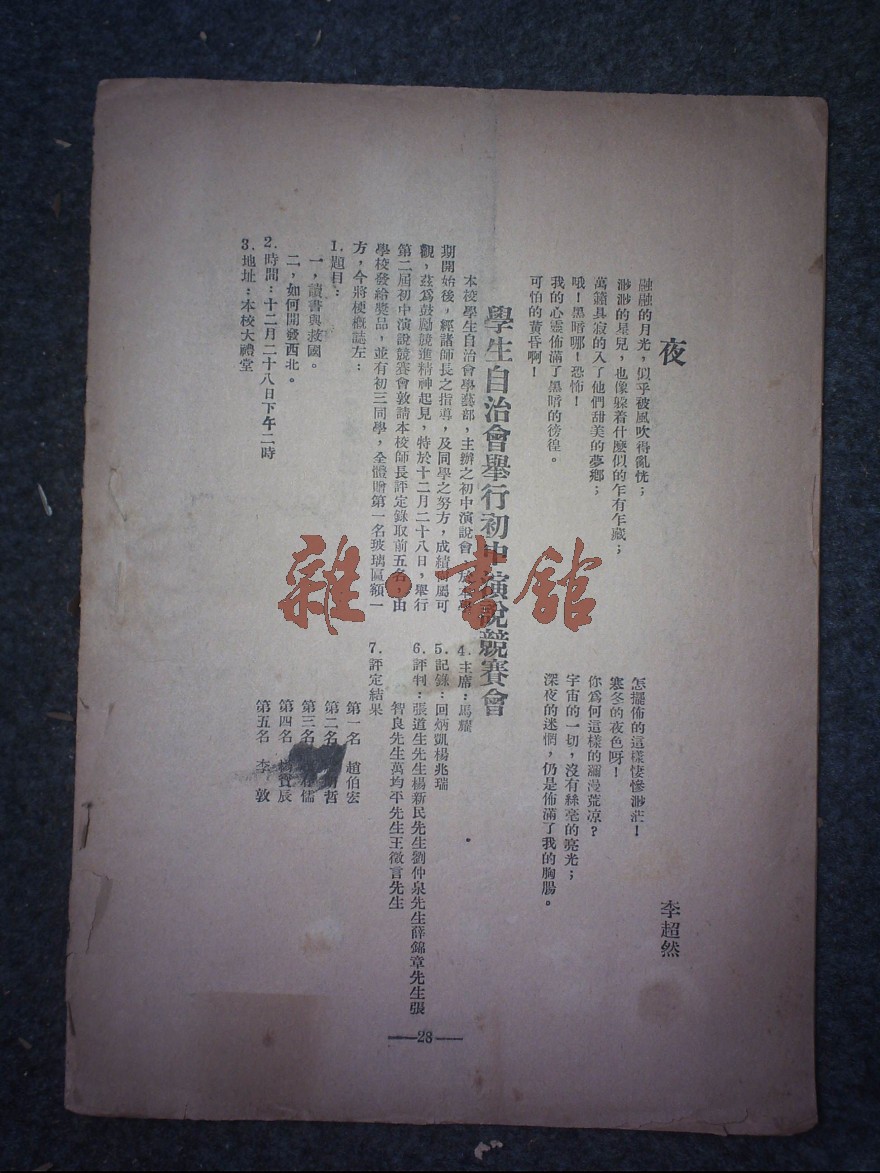 夜
李超然
融融的月光，似乎被風吹得亂恍；
渺渺的星兒，也像躲着什麽似的乍有乍藏；
萬籟具寂的入了他們甜美的夢鄉；
哦！黑暗哪！恐怖！
我的心靈佈滿了黑暗的徬徨。
可怕的黄昏啊！
怎擺佈的這樣悽慘渺茫！
寒冬的夜色呀！
你爲何這樣的瀰漫荒凉？
宇宙的一切，沒有絲毫的亮光；
深夜的迷惘，仍是佈滿了我的胸腸。
學生自治會舉行初中演說競賽會
本校學生自治會學藝部，主辦之初中演說會，於本學
期開始後，經諸師長之指導，及同學之努方，成績屬可
觀，茲爲鼓勵競進精神起見，特於十二月二十八日，舉行
第二屆初中演說競賽會敦請本校師長評定錄取前五名，由
學校發給獎品，並有初三同學，全體贈第一名玻璃匾額一
方，今將梗概誌左：
1.題目：
一，讀書與救國。
二，如何開發西北。
2.時間：十二月二十八日下午二時
3.地址：本校大禮堂
4.主席：馬耀
5.記錄：回炳凱楊兆瑞
6.評判：張道生先生楊新民先生劉仲泉先生薛錦章先生張
智良先生萬均平先生王徵言先生
7.評定結果
第一名 趙伯宏
第二名 哲
第三名 儒
第四名 賓辰
第五名 李 敦
—28—
雜·書館